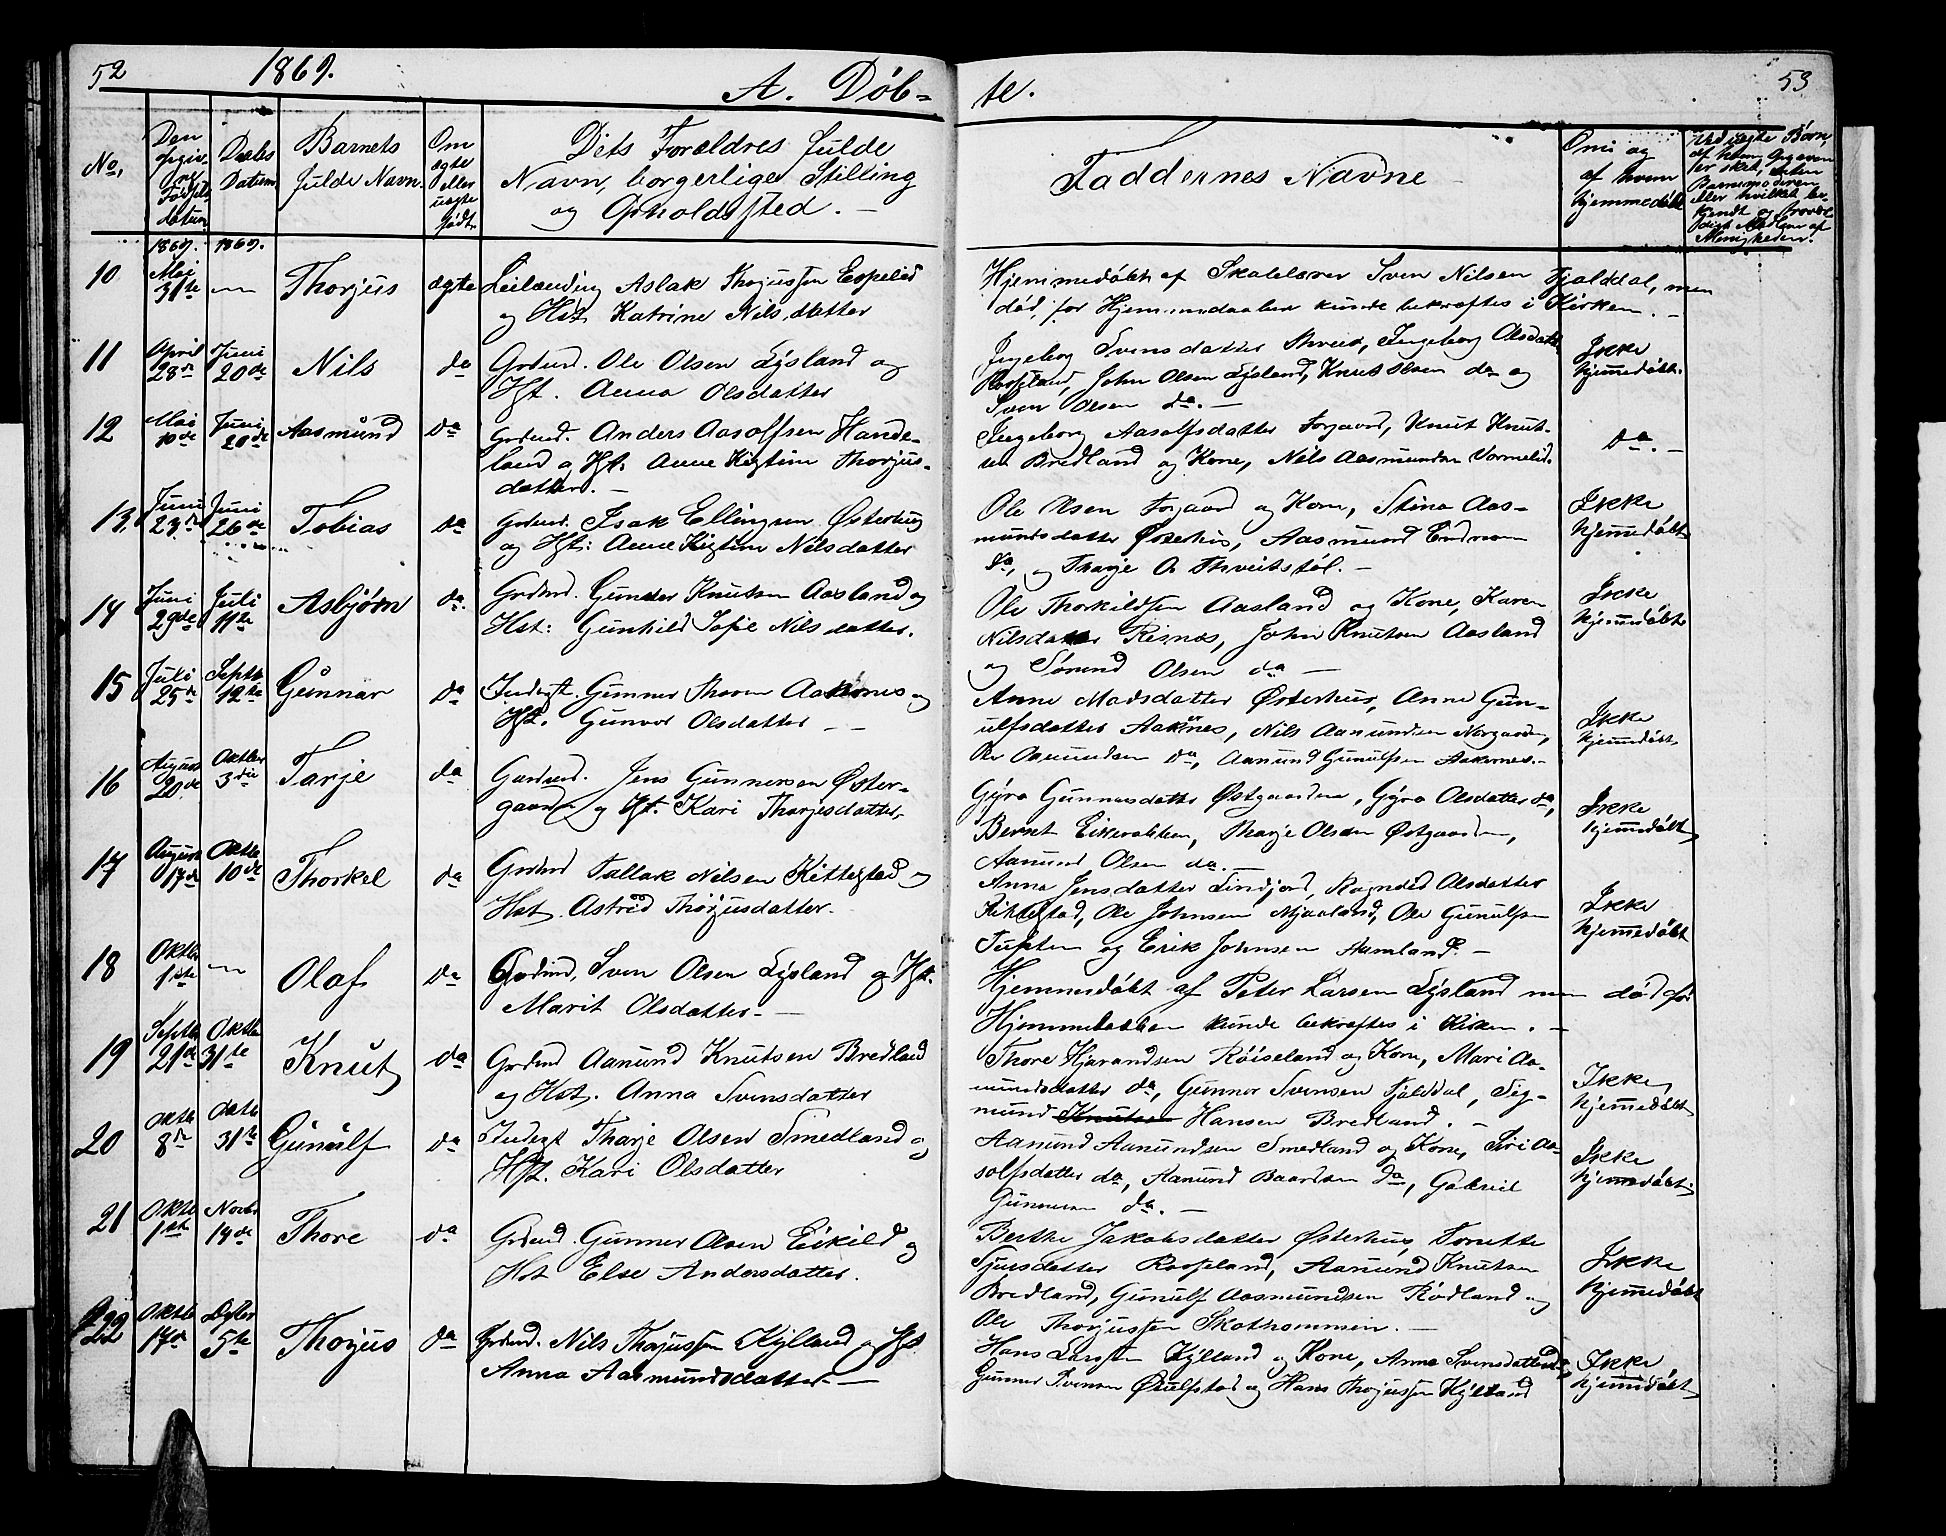 52 1869. A. Døb- te. 53
No. Den Døbtes Datum Barnets fulde Navn Om ægte eller uægte født. Dets Forældres fulde Navn, borgerlige Stilling og Opholdssted. Faddernes Navne Om og af hvem hjemmedøbt
1869. 1869.
10 Mai 31te Thorjus ægte Leilænding Aslak Thorjussen Espelid
og Hst. Katrine Nilsdatter
Hjemmedøbt af Skolelærer Sven Nilsen Fjalddal, men
død, før Hjemmedaaben kunde bekræftes i Kirken.
11 April 28de Juni 20de Nils do Grdmd. Ole Olsen Lisland og
Hst. Anna Olsdatter
Ingeborg Svensdatter Ingeborg Olsdatter
Roosland, John Olsen Lisland, Knut Olsen do og
Sven Olsen do.
Ikke hjemmedøbt
12 Mai 10de Juni 20de Aasmund do Grdmd. Anders Aasolfsen Hande-
land og Hst. Anne Kistine Thorjus-
datter.
Ingeborg Aasolfsdatter Torgaard, Knut Knut-
sen Bredland og Kone, Nils Aasmundsen Varmelid.
do.
13 Juni 23de Juni 26de Tobias do Grdmd. Isak Ellingsen Østerhus
og Hst: Anne Kistine Nilsdatter
Ole Olsen Torgaard og Kone, Stina Aas-
mundsdatter Østerhus, Aasmund
do, og Tharje O. Thveitstøl.
Ikke hjemmedøbt
14 Juni 29de Juli 11te Asbjørn do. Grdmd. Gunder Knutsen Aasland og
Hst: Gunhild Sofie Nilsdatter.
Ole Thorkildsen Aasland og Kone, Karen
Nilsdatter Risnæs, John Knutsen Aasland
og Sørend Olsen do
Ikke hjemmedøbt
15 Juli 25de Septb 12te Gunnar do Inderst. Gunner Thoren Aakernes og
Hst. Gunvor Olsdatter
Anne Madsdatter Østerhus, Anne Gun-
ulfsdatter Aaknes, Nils Aanundsen Norgaarden,
Ole Aanundsen do, Aanund Gunulfsen Aakernes.
Ikke hjemmedøbt
16 August 20de Oktbr 3die Tarje do Gardmd. Jens Gunnersen Øster-
gaard og Hst. Kari Thorjesdatter
Gyro Gunnarsdatter Østgaarden, Gyro Olsdatter do,
Bernt Eikerakken, Tharje Olsen Østgaarden,
Aanund Olsen do.
Ikke hjemmedøbt
17 August 17de Oktbr 10de Thorkel do Grdmd Tallak Nilsen Kittegstad og
Hst. Astrid Thorjusdatter.
Anna Jensdatter Lindjord, Ragnild Olsdatter
Kittelstad, Ole Johnsen Mjaaland, Ole Gunulfsen
Tuften og Erik Johnsen Aamland.
Ikke hjemmedøbt
18 Oktbr 1ste Olaf do Grdmd, Sven Olsen Lisland og Hst.
Marit Olsdatter
Hjemmedøbt af Peter Larsen Lisland men død før
Hjemmedaaben kunde bekræftes i Kirken.
19 Septbr 21de Oktbr 31te Knut do Grdmd Aanund Knutsen Bredland
og Hst. Anna Svensdatter
Thore Hjarandsen Røiseland og Kone, Mari Aa-
nundsdatter do, Gunner Svensen Fjalddal, Sig-
mund Knutsen Hansen Bredland.
Ikke hjemmedøbt
20 Oktb 8de Oktb 31te Gunulf do Inderst Tharje Olsen Smedland og
Hst. Kari Olsdatter
Aanund Aanundsen Smedland og Kone, Siri Aa-
solfsdatter do, Aanund Baardsen do, Gabriel
Gunnersen do.
Ikke hjemmedøbt
21 Oktb 1ste Novbr 14de Thore do Grdmd. Gunner Olsen Eikild og
Hst Else Andersdatter.
Berthe Jakobsdatter Østerhus, Tonette
Roosland, Aanund Knutsen
Bredland, Gunulf Aasmundsen Rødland og
Ole Thorjussen Skothommen.
Ikke hjemmedøbt
22 Oktb 17de Dcbr 5te Thorjus do Grdmd. Nils Thorjussen Kylland og Hst
Anna Aasmundsdatter
Hans Larssen Kylland og Kone, Anne Svensdatter
Gunner Svensen og Hans Thorjussen Kylland
Ikke hjemmedøbt